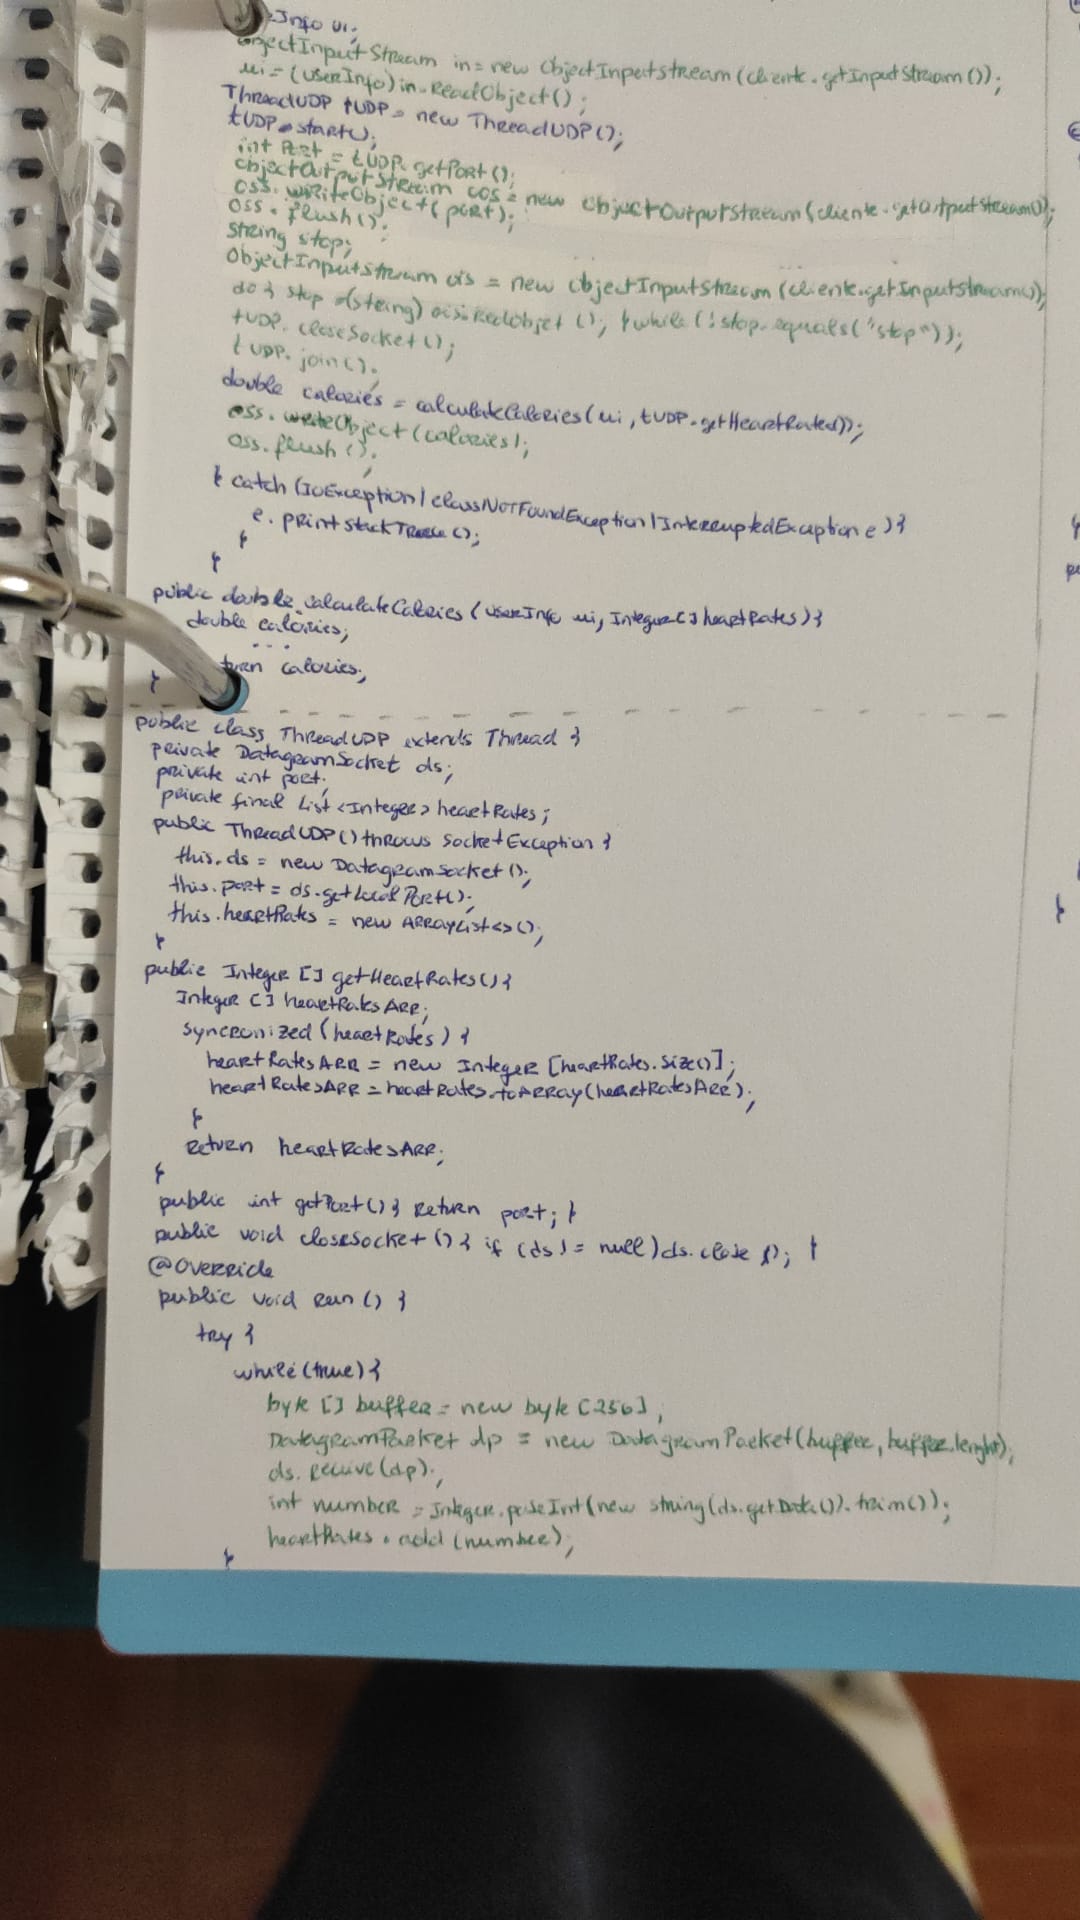 Info ui;
ObjectInputStream in = new ObjectInputStream(cliente.getInputStream());
ui = (UserInfo) in.ReadObject();
ThreadUDP tUDP = new ThreadUDP();
tUDP.start();
int Port = tUDP.getPort();
ObjectOutputStream oos = new ObjectOutputStream(cliente.getOutputStream());
oss.writeObject(port);
oss.flush();
String stop;
ObjectInputStream ois = new ObjectInputStream(cliente.getInputStream());
do { stop = (string) ois.RedObjet(); } while (!stop.equals("stop"));
tUDP.closeSocket();
tUDP.join();
double calories = calculateCalories(ui, tUDP.getHeartRates());
oss.writeObject(calories);
oss.flush();
} catch (IOException | classNotFoundException | InterruptedException e) {
e.printStackTrace();
}
}
public double calculateCalories (UserInfo ui, Integer[] heartRates) {
double calories;
...
turn calories;
}
public class ThreadUDP extends Thread {
private DatagramSocket ds;
private int port;
private final List<Integer> heartRates;
public ThreadUDP() throws SocketException {
this.ds = new DatagramSocket();
this.port = ds.getLocalPort();
this.heartRates = new ArrayList<>();
}
public Integer [] getHeartRates() {
Integer [] heartRatesArr;
syncronized (heartRates) {
heartRatesArr = new Integer [heartRates.size()];
heartRatesArr = heartRates.toArray(heartRatesArr);
}
return heartRatesArr;
}
public int getPort() { return port; }
public void closeSocket() { if (ds != null) ds.close(); }
@Override
public void run() {
try {
while (true) {
byte [] buffer = new byte [256];
DatagramPacket dp = new DatagramPacket(buffer, buffer.lenght);
ds.recive(dp);
int number = Integer.parseInt(new string(ds.getData()).trim());
heartRates.add(number);
}